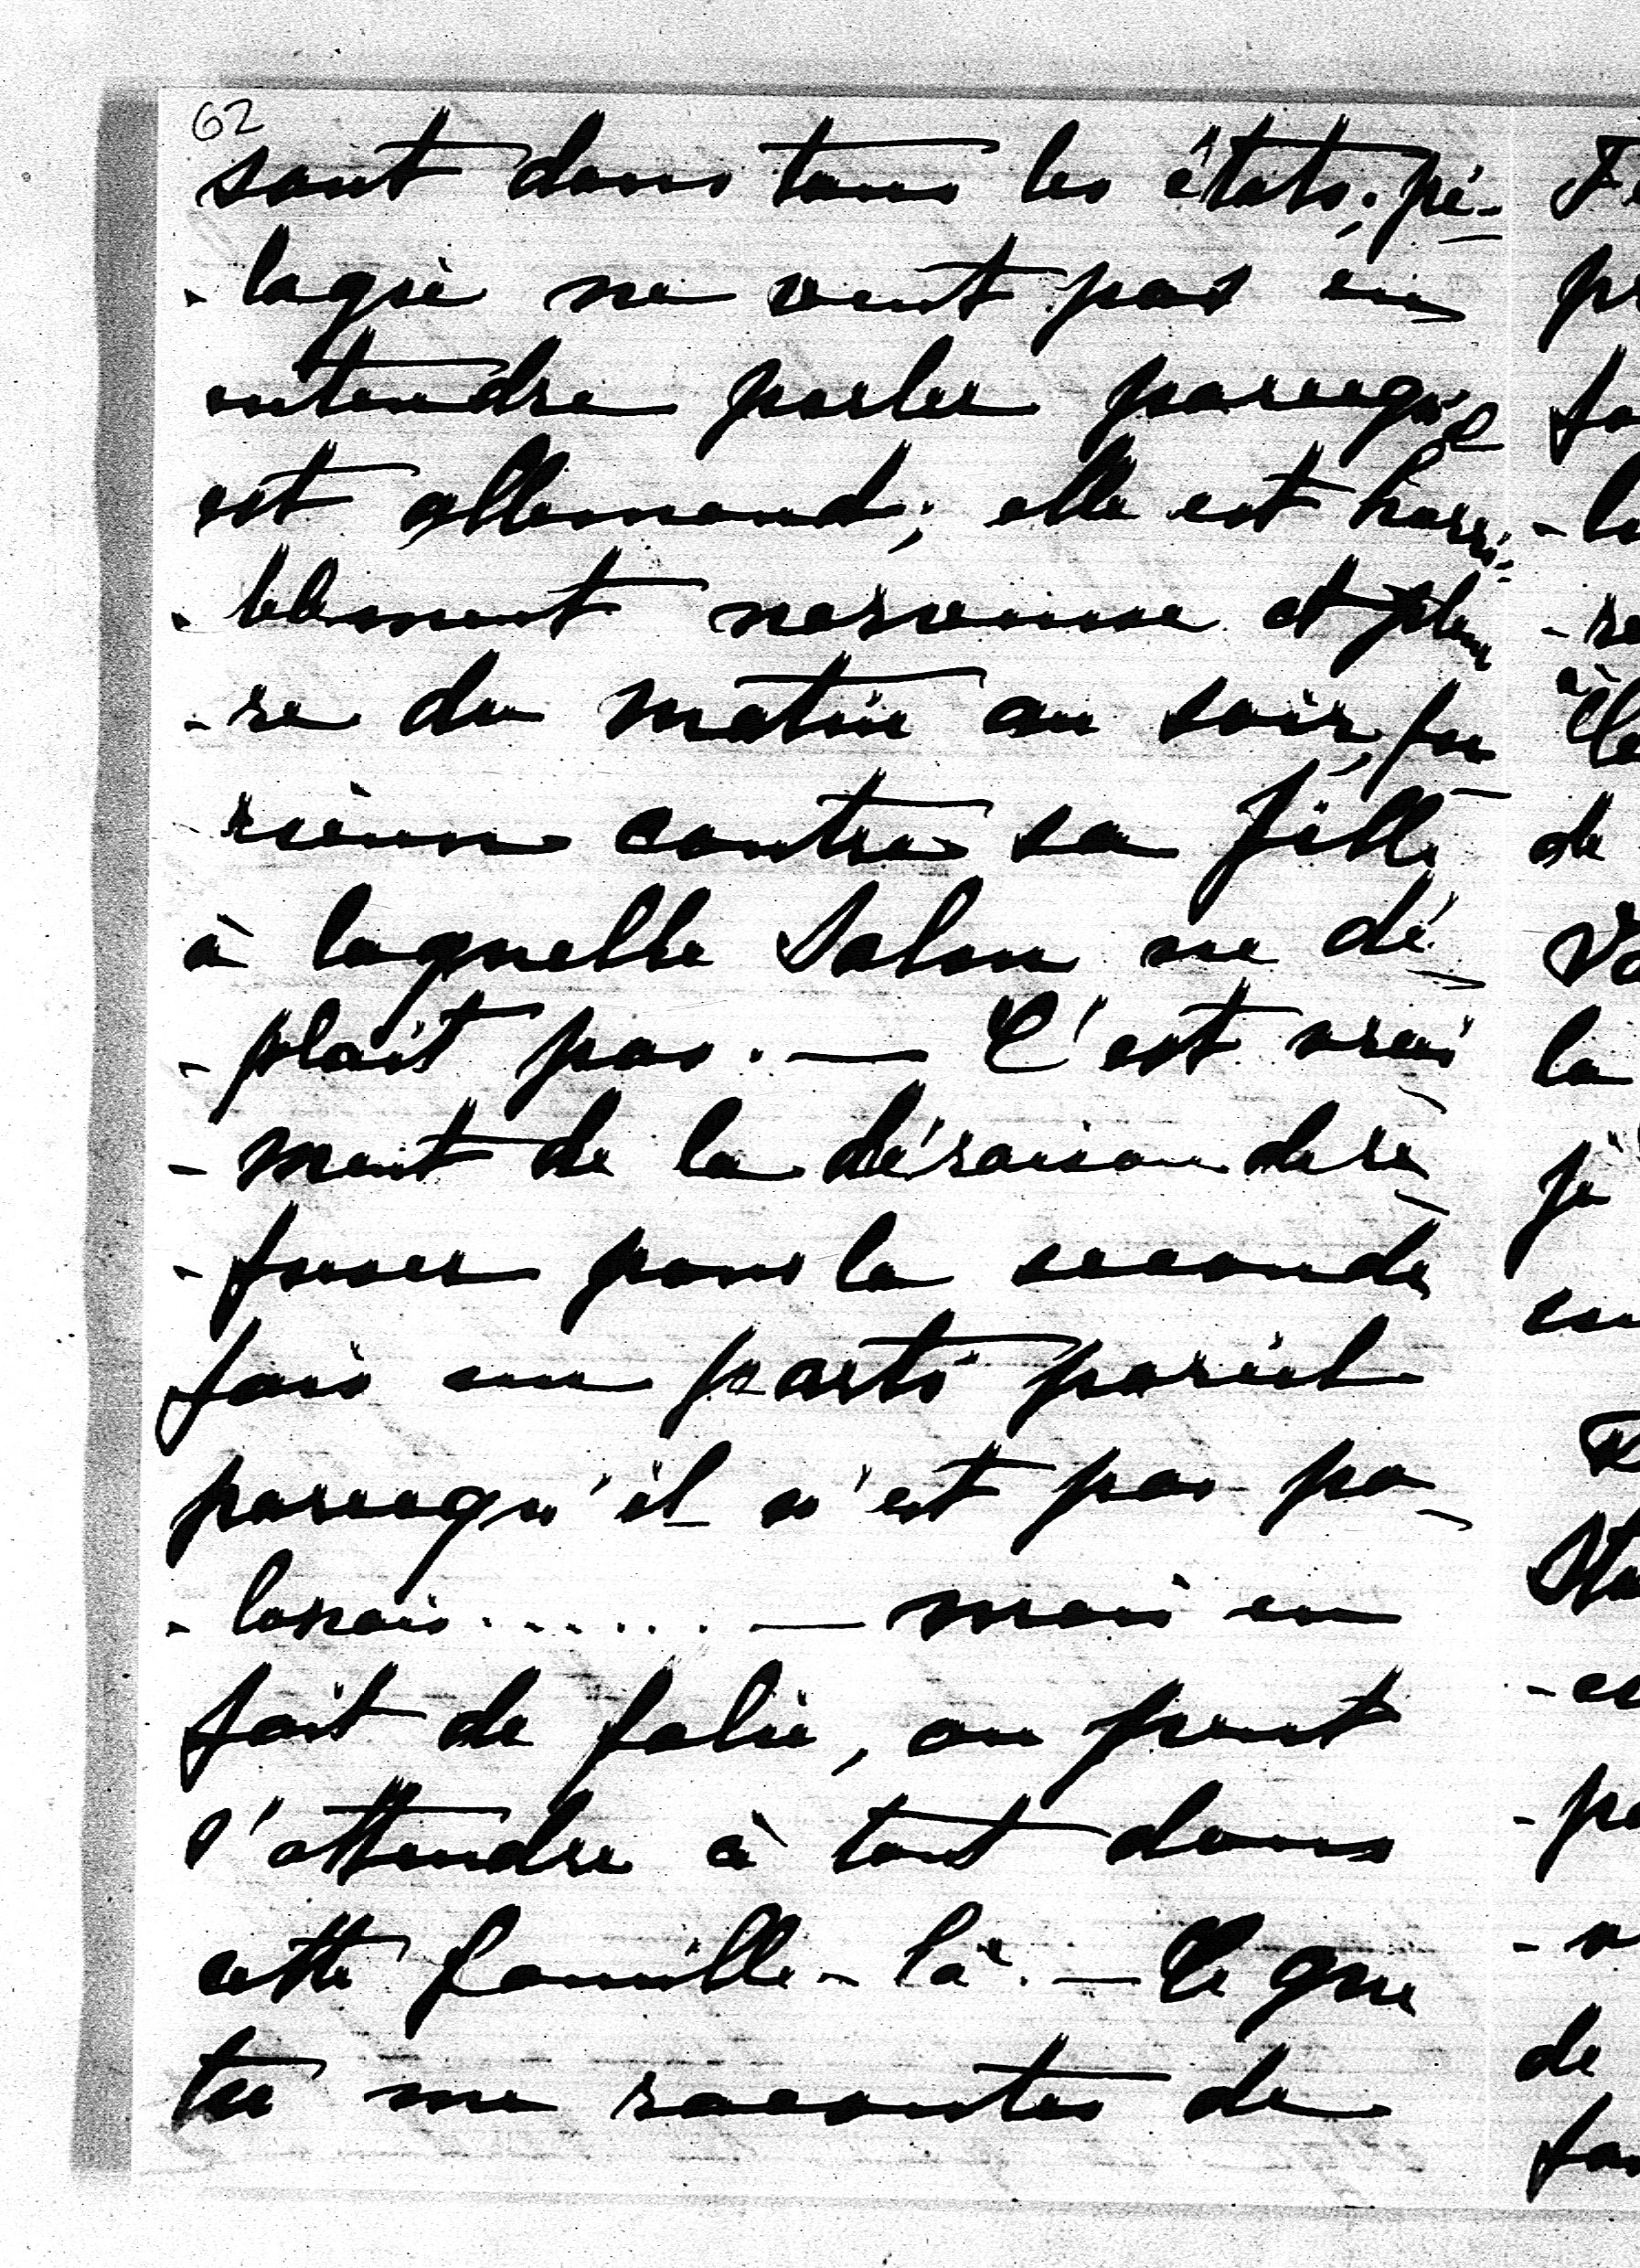 62
sont dans tous les états; pé-
-lagie ne veut pas en
entendre parler parcequ'il
est allemand; elle est horri-
-blement nerveuse et pleu
-re du matin au soir, fu
-rieuse contre sa fille
à laquelle Salm ne dé-
-plait pas. — C'est vrai
-ment de la déraison de re-
-fuser pour la seconde
fois un parti pareil
parcequ'il n'est pas po-
-lonais....... — mais en
fait de folie, on peut
s'attendre à tout dans
cette famille-là. — Ce que
tu me racontes de